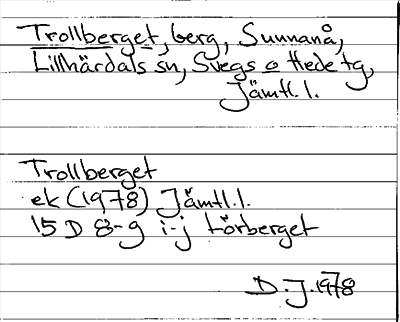 Trollberget, berg, Sunnanå,
Lillhärdals sn, Svegs o Hede tg,
Jämtl. l.
Trollberget
ek (1978) Jämtl. l.
15 D 8-9 i-j Lörberget
D. J. 1978